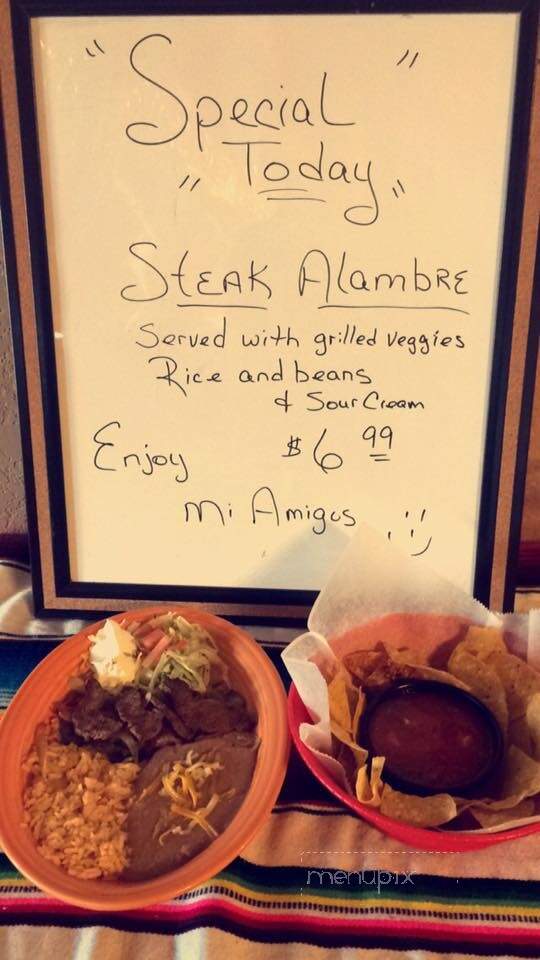 " Special "
" Today "
Steak Alambre
Served with grilled veggies
Rice and beans
& Sour Cream
Enjoy $6 99
Mi Amigos :)
menupix